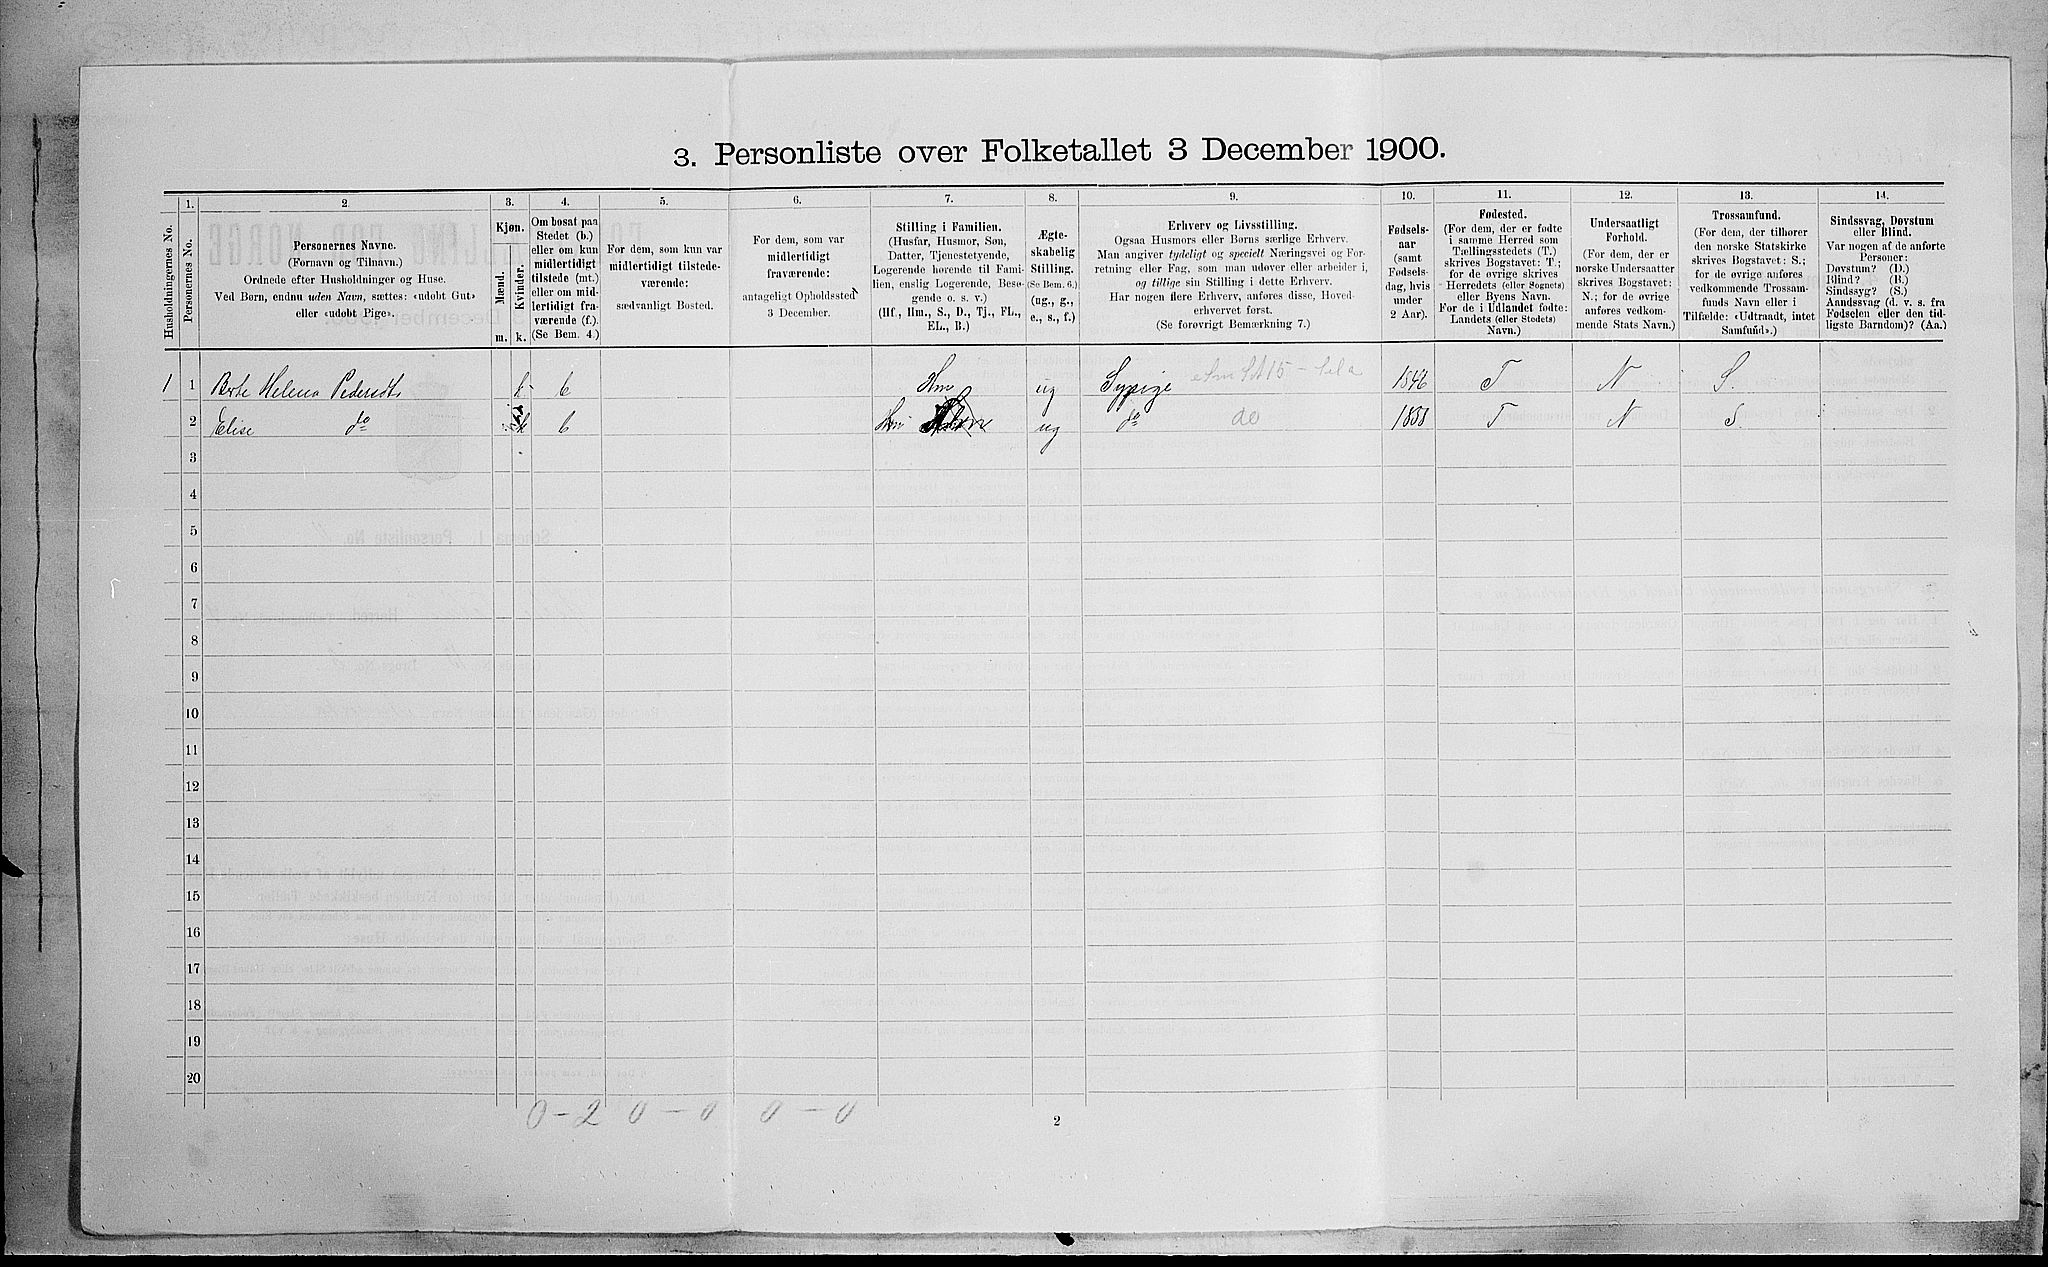 3. Personliste over Folketallet 3 December 1900.
Husholdningernes No.
1.
Personernes No.
2.
Personernes Navne.
(Fornavn og Tilnavn.)
Ordnede efter Husholdninger og Huse.
Ved Børn, endnu uden Navn, sættes: «udøbt Gut»
eller «udøbt Pige».
3.
Kjøn.
Mænd.
Kvinder.
m. k.
4.
Om bosat paa
Stedet (b.)
eller om kun
midlertidigt
tilstede (mt.)
eller om mid-
lertidigt fra-
værende (f.)
(Se Bem. 4.)
5.
For dem, som kun var
midlertidigt tilstede-
værende:
sædvanligt Bosted.
6.
For dem, som var
midlertidigt
fraværende:
antageligt Opholdssted
3 December.
7.
Stilling i Familien.
(Husfar, Husmor, Søn,
Datter, Tjenestetyende,
Logerende hørende til Fami-
lien, enslig Logerende, Besø-
gende o. s. v.)
(Hf., Hm., S., D., Tj., FL.,
EL., B.)
8.
Ægte-
skabelig
Stilling.
(Se Bem. 6.)
(ug., g.,
e., s., f.)
9.
Erhverv og Livsstilling.
Ogsaa Husmors eller Børns særlige Erhverv.
Man angiver tydeligt og specielt Næringsvei og For-
retning eller Fag, som man udøver eller arbeider i,
og tillige sin Stilling i dette Erhverv.
Har nogen flere Erhverv, anføres disse, Hoved-
erhvervet først.
(Se forøvrigt Bemærkning 7.)
10.
Fødsels-
aar
(samt
Fødsels-
dag, hvis
under
2 Aar).
11.
Fødested.
(For dem, der er fødte
i samme Herred som
Tællingsstedets (T.)
skrives Bogstavet: T.;
for de øvrige skrives
Herredets (eller Sognets)
eller Byens Navn.
For de i Udlandet fødte:
Landets (eller Stedets)
Navn.)
12.
Undersaatligt
Forhold.
(For dem, der er
norske Undersaatter
skrives Bogstavet:
N.; for de øvrige
anføres vedkom-
mende Stats Navn.)
13.
Trossamfund.
(For dem, der tilhører
den norske Statskirke
skrives Bogstavet: S.;
for de øvrige anføres
vedkommende Trossam-
funds Navn eller i
Tilfælde: «Udtraadt, intet
Samfund».)
14.
Sindssvag, Døvstum
eller Blind.
Var nogen af de anførte
Personer:
Døvstum? (D.)
Blind? (B.)
Sindssyg? (S.)
Aandssvag (d. v. s. fra
Fødselen eller den tid-
ligste Barndom)? (Aa.)
1 1 Berte Helena Pedersdt. k b Hm ug Sypige 1846 T N S.
2 Elise do k b Hm ug do do 1838 T N S
3
4
5
6
7
8
9
10
11
12
13
14
15
16
17
18
19
20
0 - 2 0 - 0 0 - 0
2